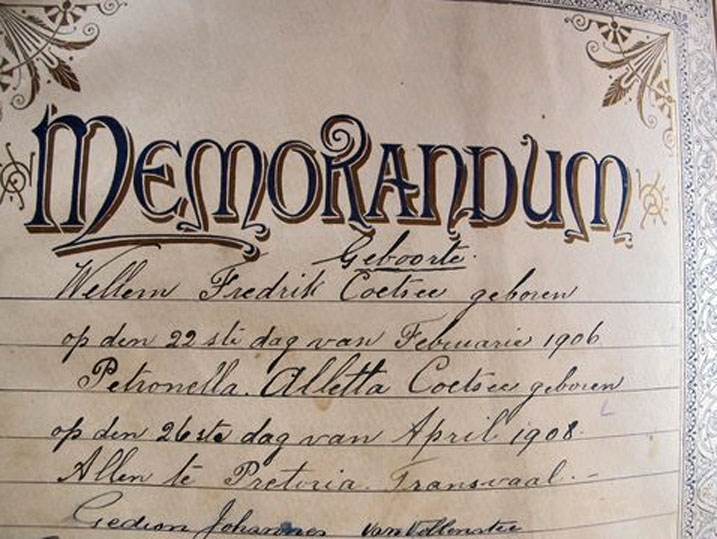 MEMORANDUM
Geboorte.
Wellem Fredrik Coetsee geboren
op den 22 ste dag van Februarie 1906
Petronella. Alletta Coetsee geboren
op den 26 ste dag van April 1908.
Allen te Pretoria. Transvaal. -
Gedion Johannes